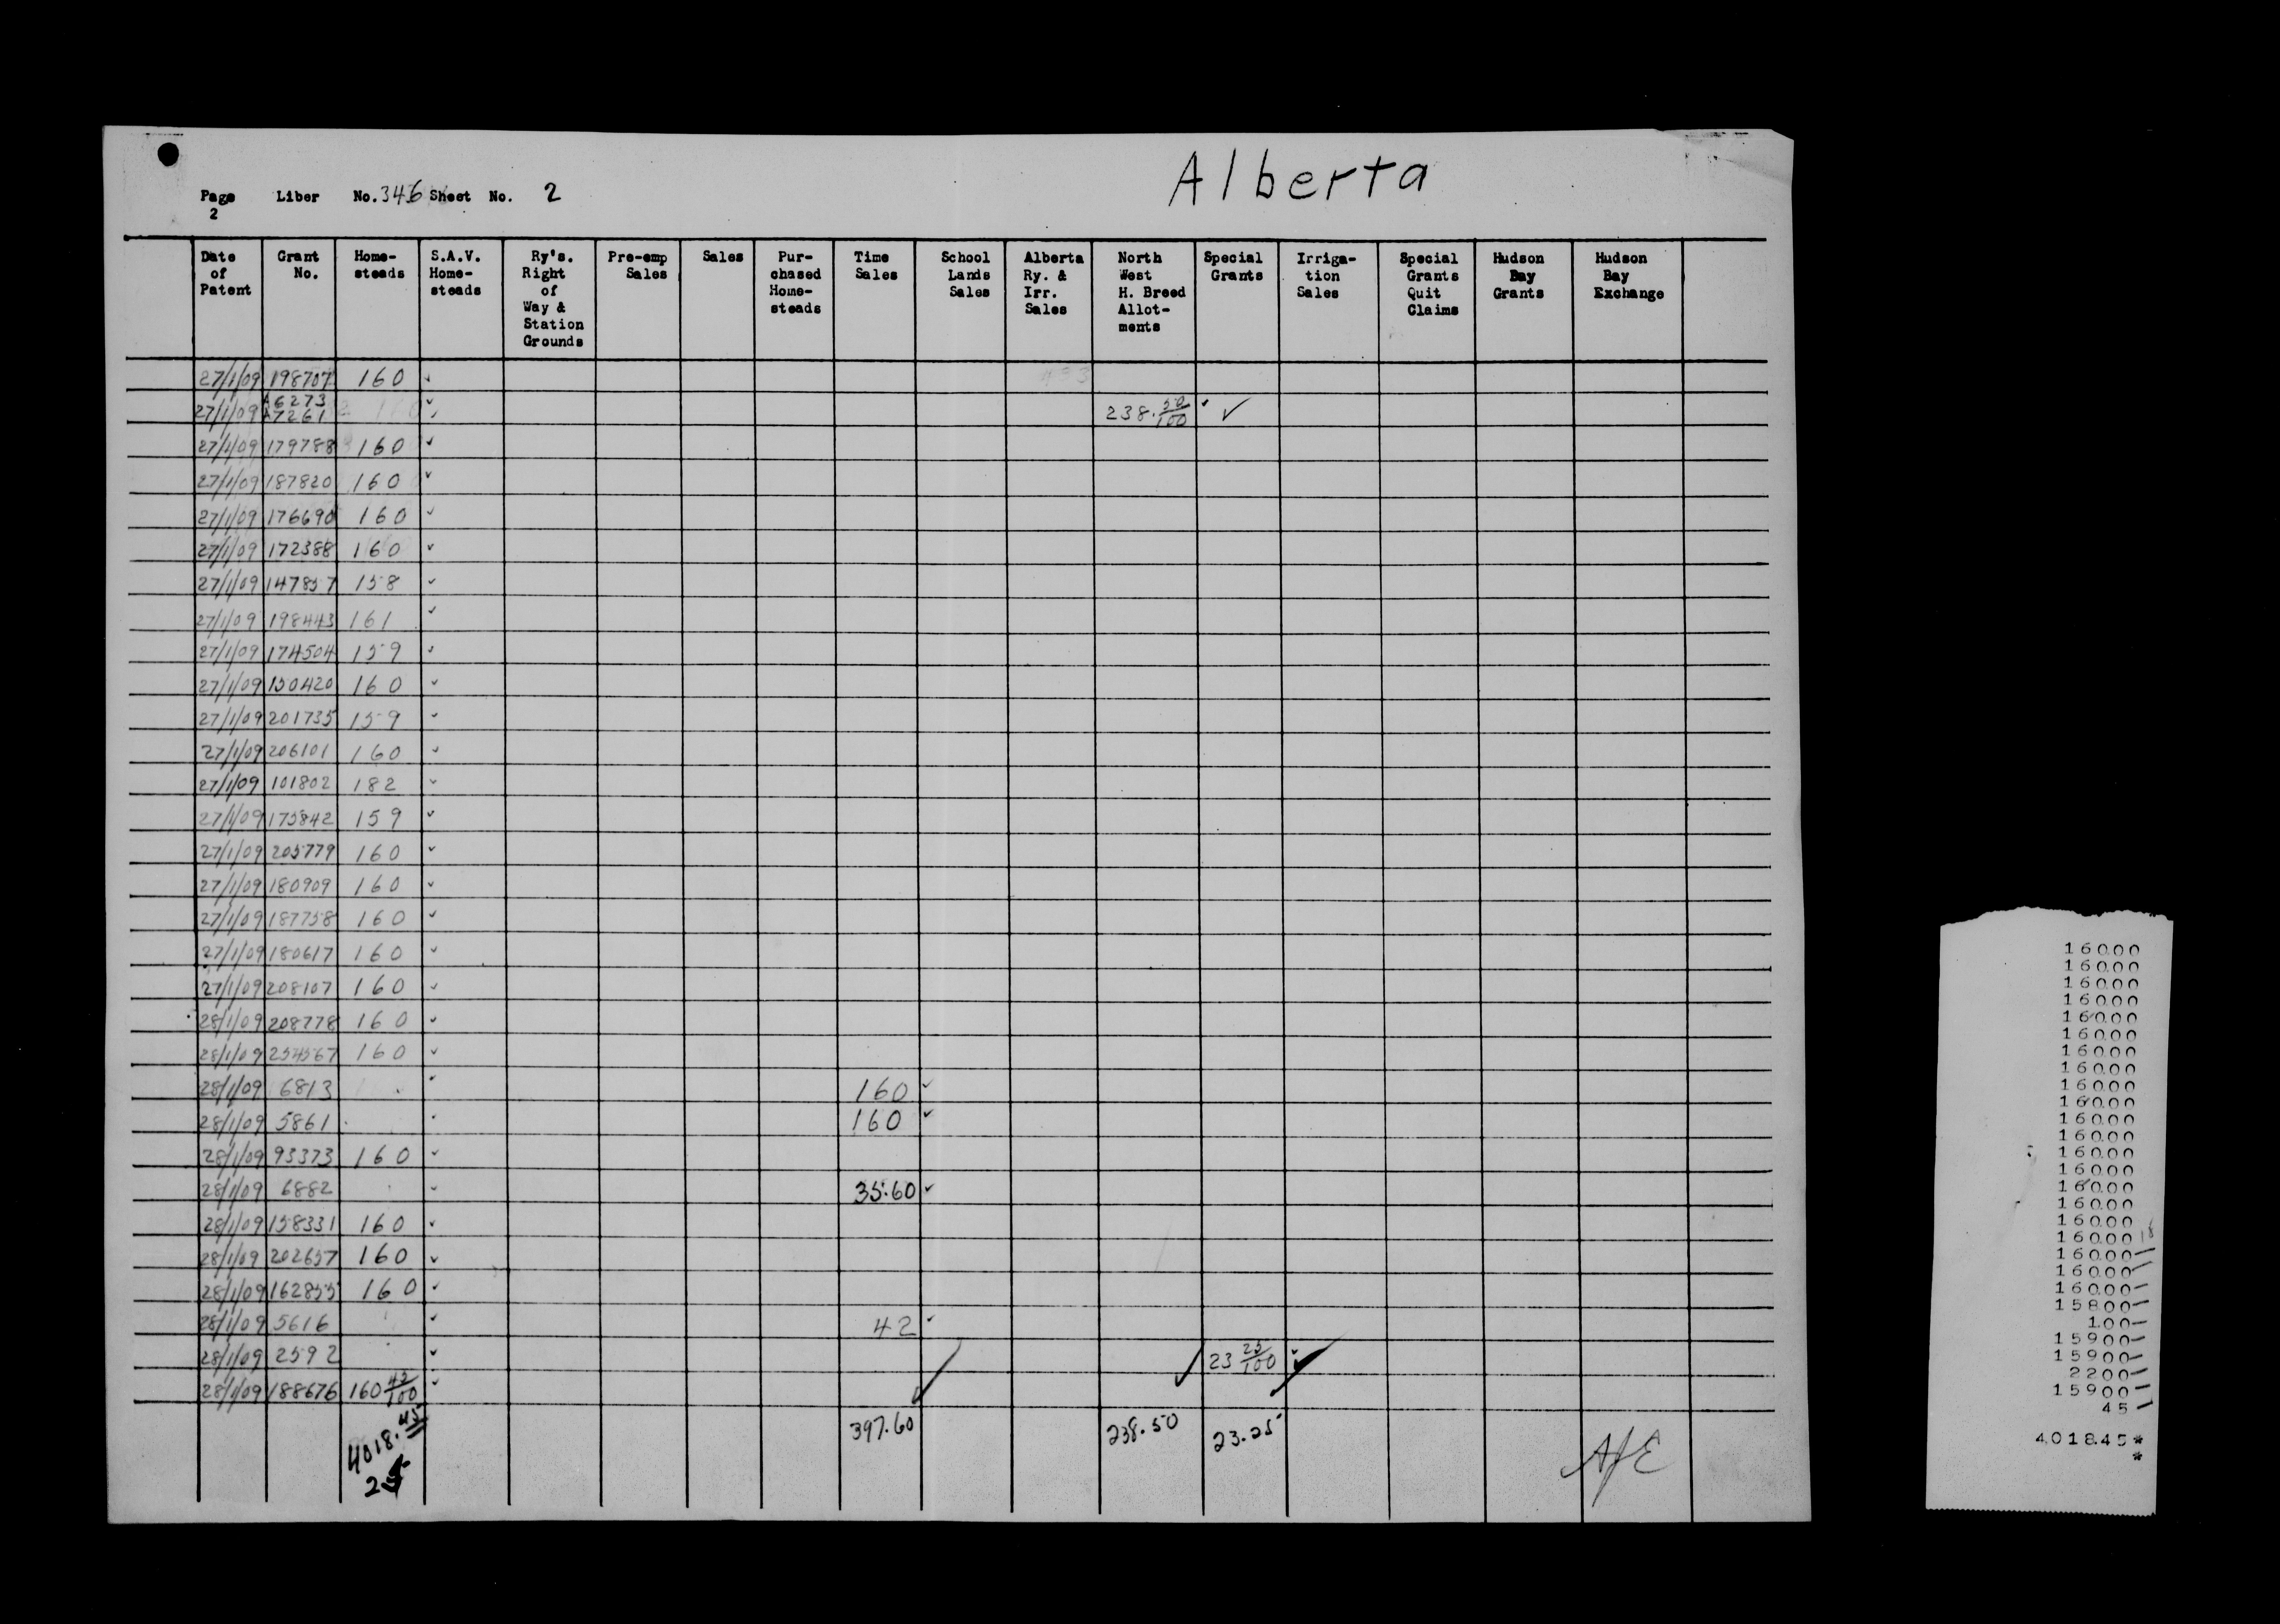 Alberta
Page Liber No. 346 Sheet No. 2
2
Date of Patent | Grant No. | Home-steads | S.A.V. Home-steads | Ry's. Right of Way & Station Grounds | Pre-emp Sales | Sales | Pur-chased Home-steads | Time Sales | School Lands Sales | Alberta Ry. & Irr. Sales | North West H. Breed Allot-ments | Special Grants | Irriga-tion Sales | Special Grants Quit Claims | Hudson Bay Grants | Hudson Bay Exchange
27/1/09 198707 160 ✓
27/1/09 A6273 A7261 ✓ ✓ 238.50/100 ✓ ✓
27/1/09 179788 160 ✓
27/1/09 187820 160 ✓
27/1/09 176690 160 ✓
27/1/09 172388 160 ✓
27/1/09 147857 158 ✓
27/1/09 198443 161 ✓
27/1/09 174504 159 ✓
27/1/09 150420 160 ✓
27/1/09 201735 159 ✓
27/1/09 206101 160 ✓
27/1/09 101802 182 ✓
27/1/09 175842 159 ✓
27/1/09 205779 160 ✓
27/1/09 180909 160 ✓
27/1/09 187758 160 ✓
27/1/09 180617 160 ✓
27/1/09 208107 160 ✓
28/1/09 208778 160 ✓
28/1/09 254567 160 ✓
28/1/09 6813 ✓ 160 ✓
28/1/09 5861 160 ✓
28/1/09 93373 160 ✓
28/1/09 6882 ✓ 35.60 ✓
28/1/09 158331 160 ✓
28/1/09 202657 160 ✓
28/1/09 162855 160 ✓
28/1/09 5616 ✓ 42 ✓
28/1/09 2592 ✓ 23 25/100 ✓
28/1/09 188676 160 45/100 ✓
4018.45 397.60 238.50 23.25
AJE
160.00
160.00
160.00
160.00
160.00
160.00
160.00
160.00
160.00
160.00
160.00
160.00
160.00
160.00
160.00
160.00
160.00
160.00 18
160.00
160.00
160.00
158.00
1.00
159.00
159.00
22.00
159.00
45
4,018.45 *
*